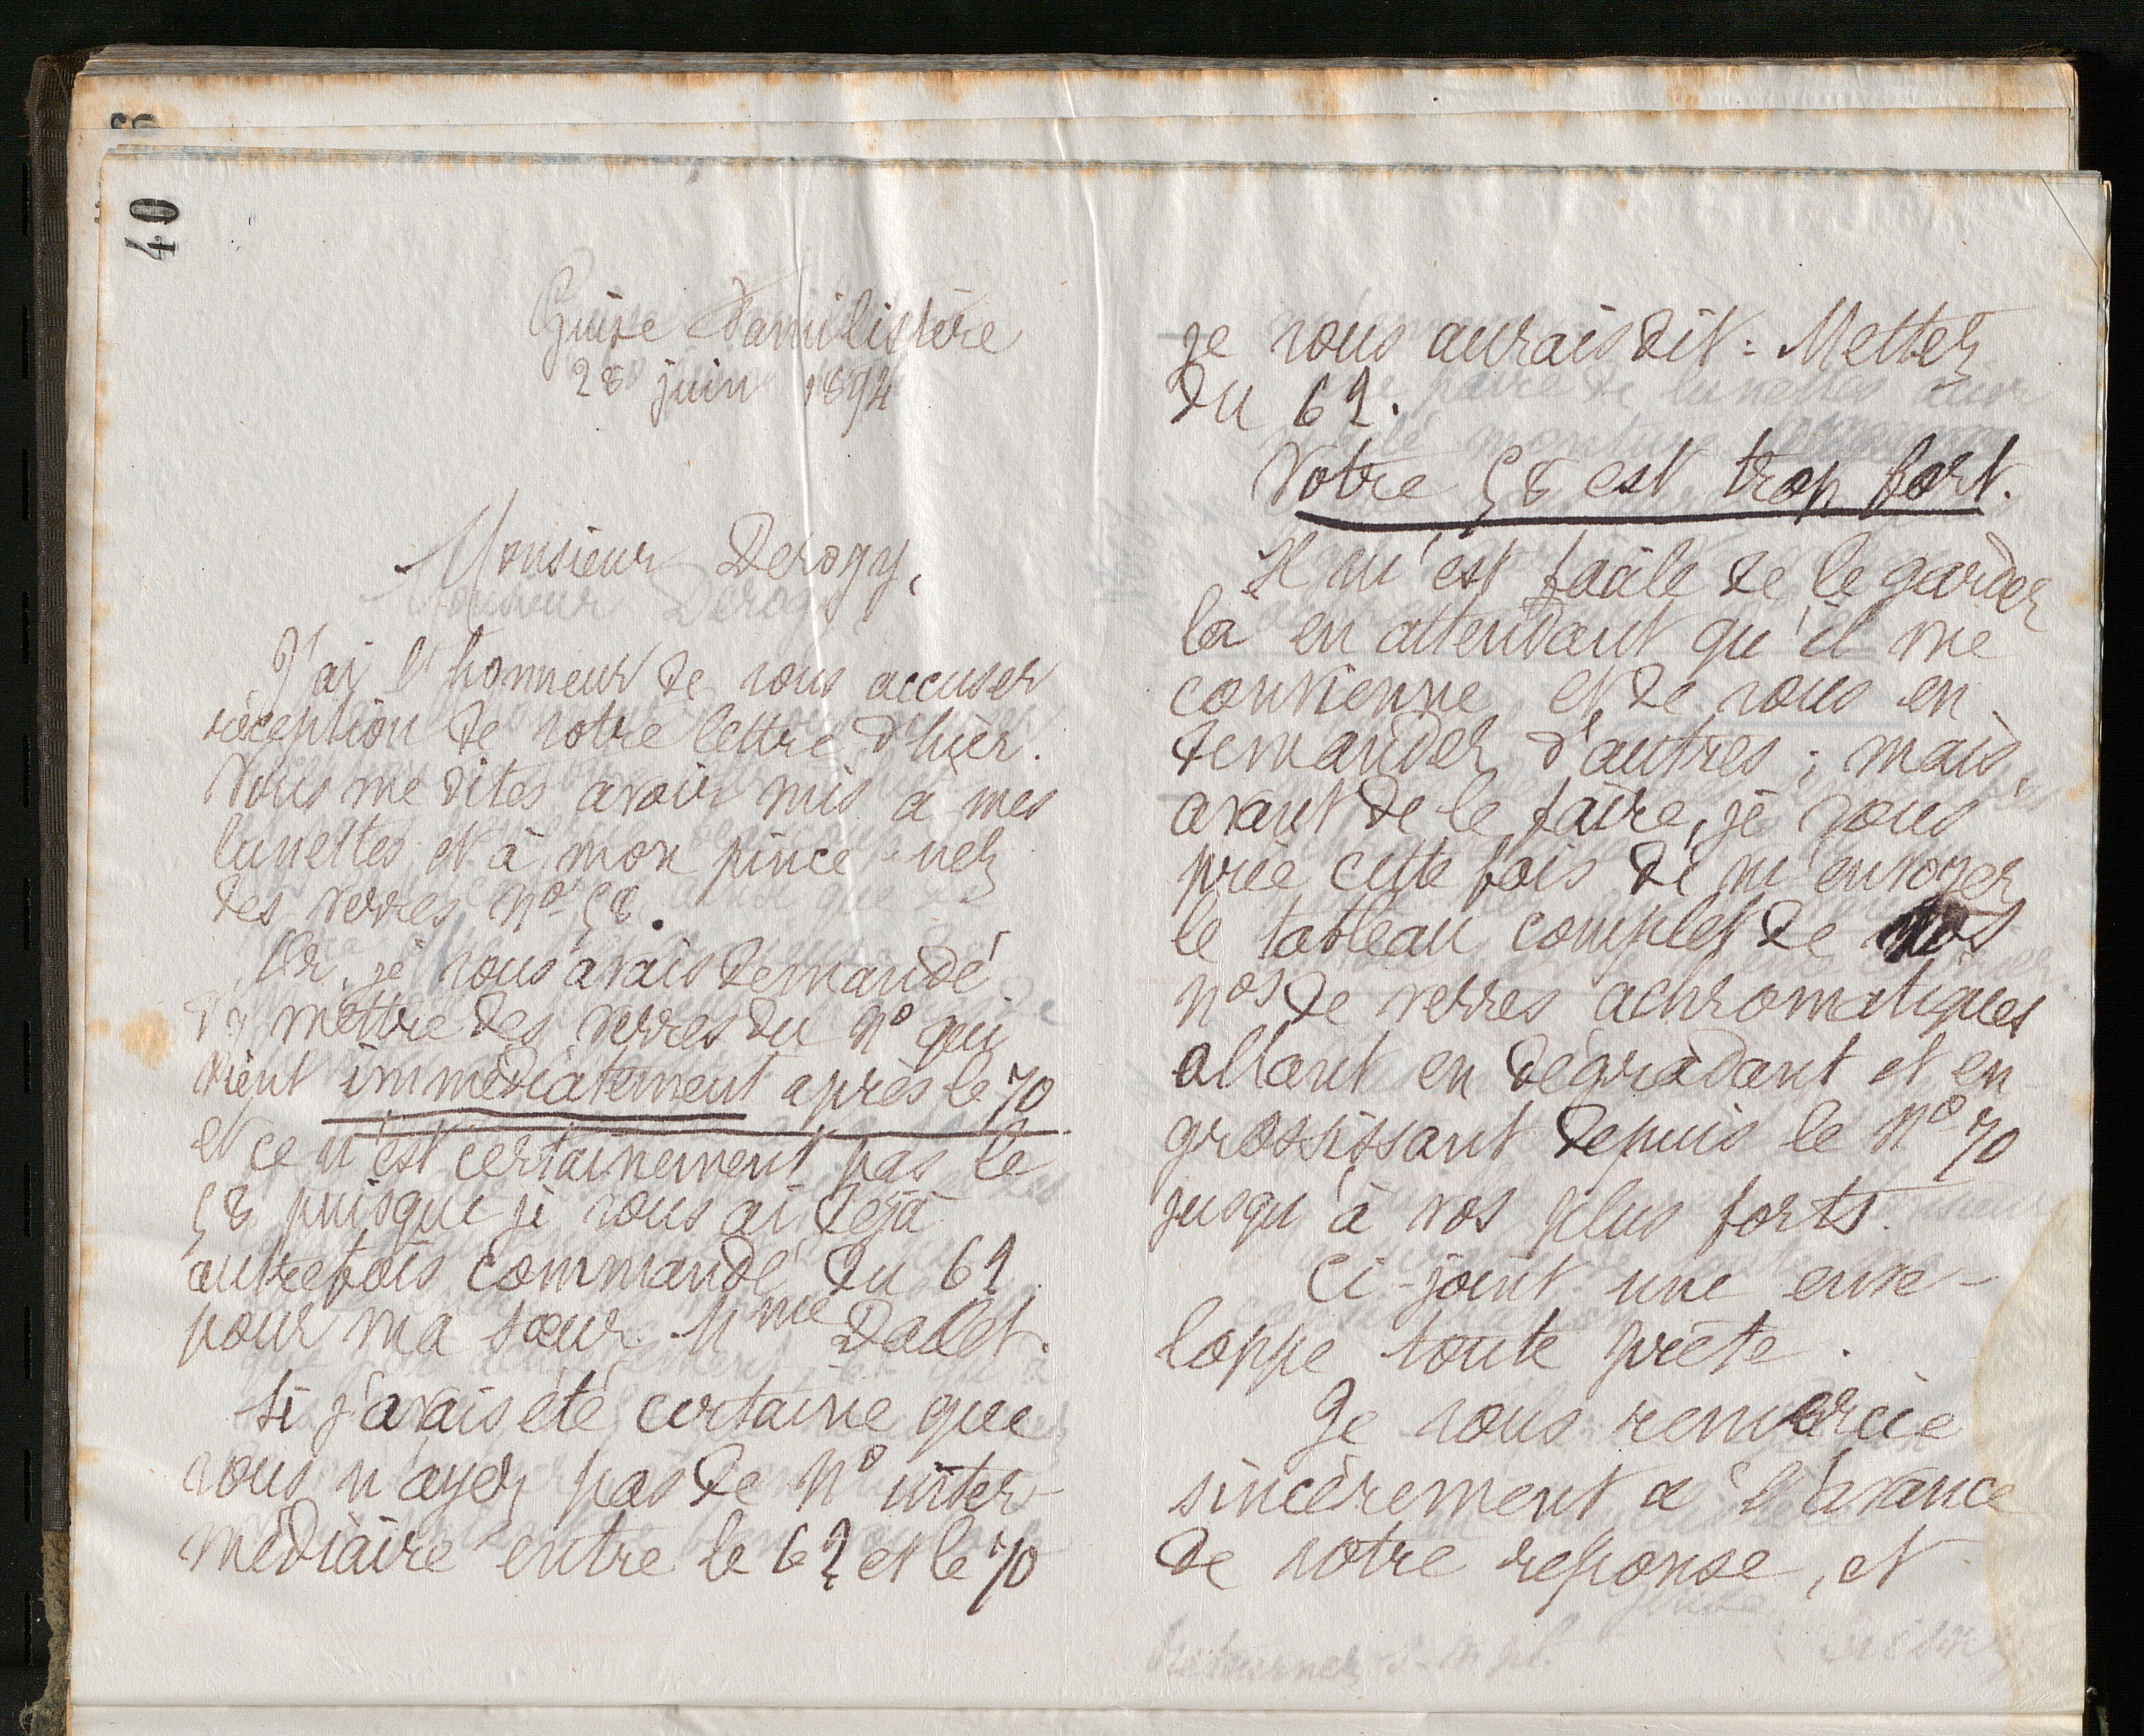 40
Guise Familistère
28 juin 1894
Monsieur Derogy,
J'ai l'honneur de vous accuser
réception de votre lettre d'hier.
Vous me dites avoir mis à mes
lunettes et à mon pince-nez
des verres nº 58.
Or, je vous avais demandé
d'y mettre des verres du nº qui
vient immédiatement après le 70
et ce n'est certainement pas le
58 puisque je vous ai déjà
autrefois commandé du 62
pour ma sœur Mme Dallet.
Si j'avais été certaine que
vous n'ayez pas de nº inter-
médiaire entre le 62 et le 70
je vous aurais dit : Mettez
du 62.
Votre 58 est trop fort.
Il m'est facile de le garder
là en attendant qu'il me
convienne et de vous en
demander d'autres ; mais,
avant de le faire, je vous
prie cette fois de m'envoyer
le tableau complet de vos
nos de verres achromatiques
allant en dégradant et en
grossissant depuis le nº 70
jusqu'à vos plus forts.
Ci-joint une enve-
loppe toute prête.
Je vous remercie
sincèrement à l'avance
de votre réponse, et